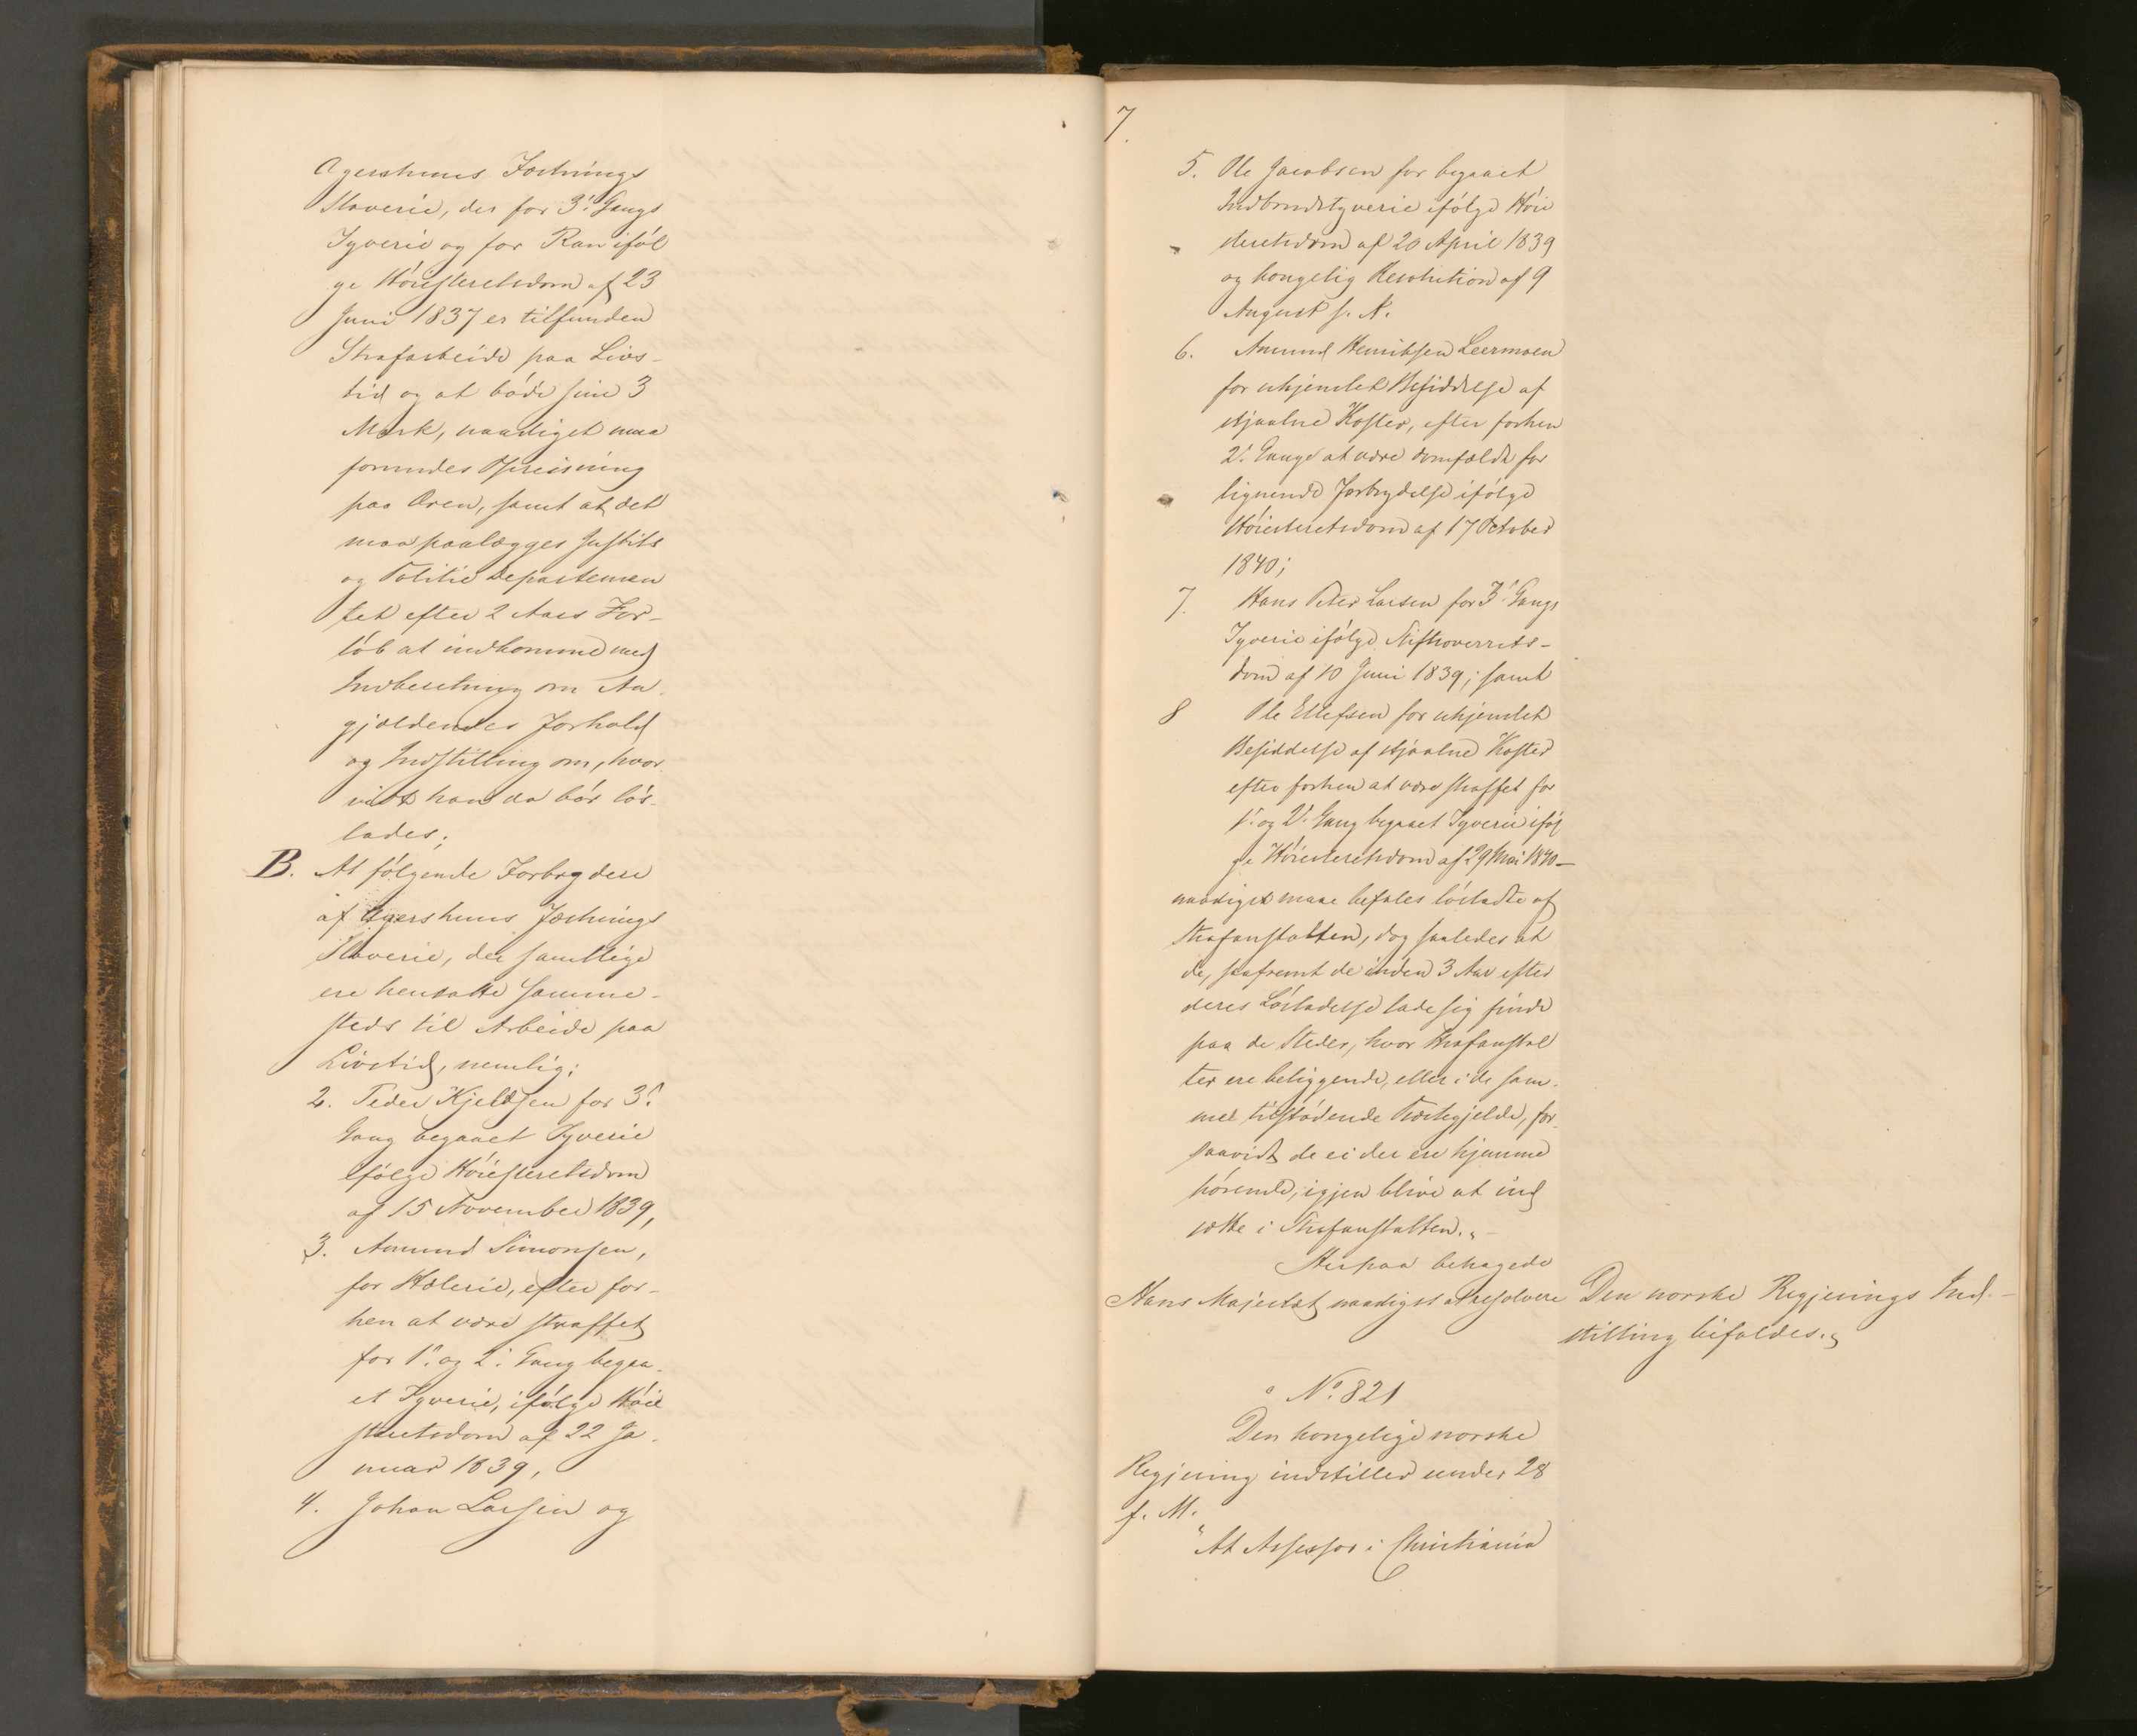 Agershuus Fæstnings
Slaverie, der for 3.' Gangs
Tyverie og for Ran iføl
ge Høiesteretsdom af 23
Juni 1837 er tilfunden
Strafarbeide paa Livs-
tid og at bøde sine 3
Mark, naadigst maa
forundes Benaadning
paa Æren, samt at det
maa paalægges Justits
og Politie Departemen
tet efter 2 Aars For-
løb at indkomme med
Indberetning om An-
gjældendes Forhold
og Indstilling om, hvor-
vidt han da bør løs-
lades;
B. At følgende Forbrydere
af Agershuus Fæstnings
Slaverie, der samtlige
ere hensatte samme-
steds til Arbeide paa
Livstid, nemlig:
2. Peder Kjeldsen for 3.'
Gang begaaet Tyverie
ifølge Høiesteretsdom
af 15 November 1839,
3. Amund Simonsen,
for Hæleri, efter for-
hen at være straffet
for 1.' og 2.' Gang begaa-
et Tyverie, ifølge Høie
steretsdom af 22 Ja-
nuar 1839,
4. Johan Larsen og
7.
5. Ole Jacobsen for begaaet
Indbrudstyverie ifølge Høie
steretsdom af 20 April 1839
og kongelig Resolution af 9
August s. A.
6. Amund Henriksen Leermoen
for uhjemlet Besiddelse af
stjaalne Koster, efter forhen
2.' Gange at være domfældt for
lignende Forbrydelse ifølge
Høiesteretsdom af 17 October
1840;
7. Hans Peter Larsen for 3.' Gangs
Tyverie ifølge Stiftsoverrets-
dom af 10 Juni 1839; samt
8 Ole Ellefsen for uhjemlet
Besiddelse af stjaalne Koster
efter forhen at være straffet for
1.' og 2.' Gang begaaet Tyverie iføl
ge Høiesteretsdom af 29 Mai 1840 —
naadigst maae befales løsladte af
Strafanstalten, dog saaledes at
de, saafremt de inden 3 Aar efter
deres Løsladelse lade sig finde
paa de Steder, hvor Strafanstal
ter ere beliggende, eller i de sam-
me tilstødende Præstegjelde, for-
saavidt de ei der ere hjemme
hørende, igjen blive at ind
sætte i Strafanstalten." –
Herpaa behagede
Hans Majestæt naadigst at resolvere
Den norske Regjerings Ind-
stilling bifaldes."
No. 821
Den kongelige norske
Regjering indstiller under 28
f. M.
"At Assessor i Christiania